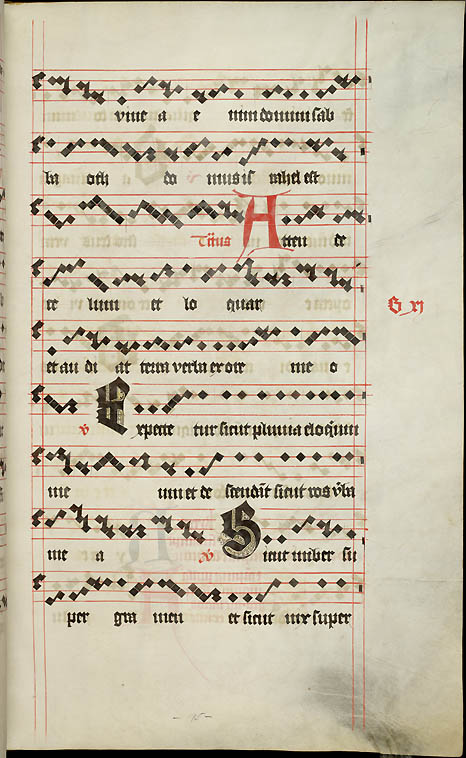 vine a e nim domini sab
ba oth do mus is rahel est
A tten de
ce lum et lo quar
G xj
et au di at terra verba ex ore me o
v Expecte tur sicut pluuia eloquium
me um et de scendat sicut ros vba
me a v Sicut imber su
per gra men et sicut nix super
- 15 -